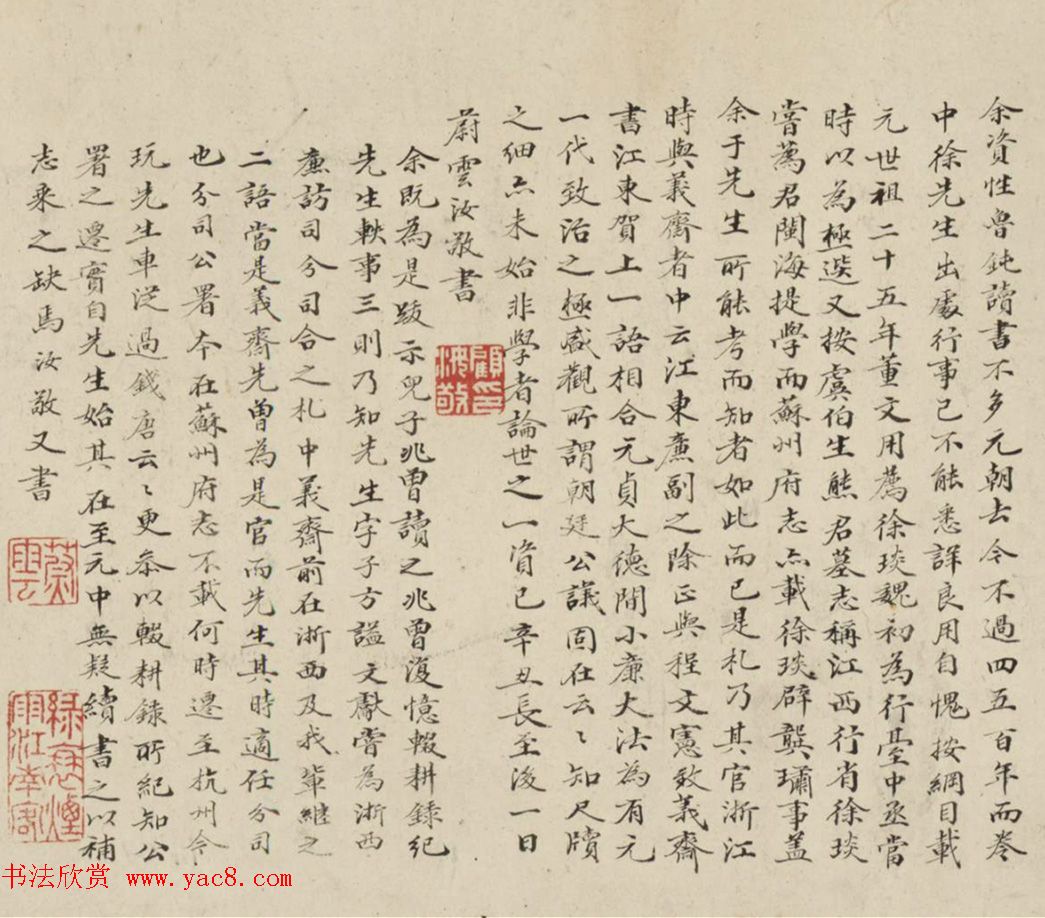 余資性魯鈍讀書不多元朝去今不過四五百年而卷
中徐先生出處行事已不能悉詳良用自愧按綱目載
元世祖二十五年董文用薦徐琰魏初為行臺中丞當
時以為極選又按虞伯生熊君墓志稱江西行省徐琰
嘗薦君閩海提學而蘇州府志亦載徐琰辟龔璛事蓋
余于先生所能考而知者如此而已是札乃其官浙江
時與義齋者中云江東廉副之除正與程文憲效義齋
書江東賀上一語相合元貞大德間小廉大法為有元
一代致治之極盛觀所謂朝廷公議固在云〻知尺牘
之細亦未始非學者論世之一資已辛丑長至後一日
蔚雲汝敬書
顧印汝敬
余既為是跋示兒子兆曾讀之兆曾復憶輟耕錄紀
先生軼事三則乃知先生字子方謚文獻嘗為浙西
廉訪司分司合之札中義齋前在浙西及我輩繼之
二語當是義齋先曾為是官而先生其時適任分司
也分司公署本在蘇州府志不載何時遷至杭州今
玩先生車從過錢唐云〻更叅以輟耕錄所紀知公
署之遷實自先生始其在至元中無疑續書之以補
志乘之缺焉汝敬又書
蔚雲
書法欣赏 www.yac8.com